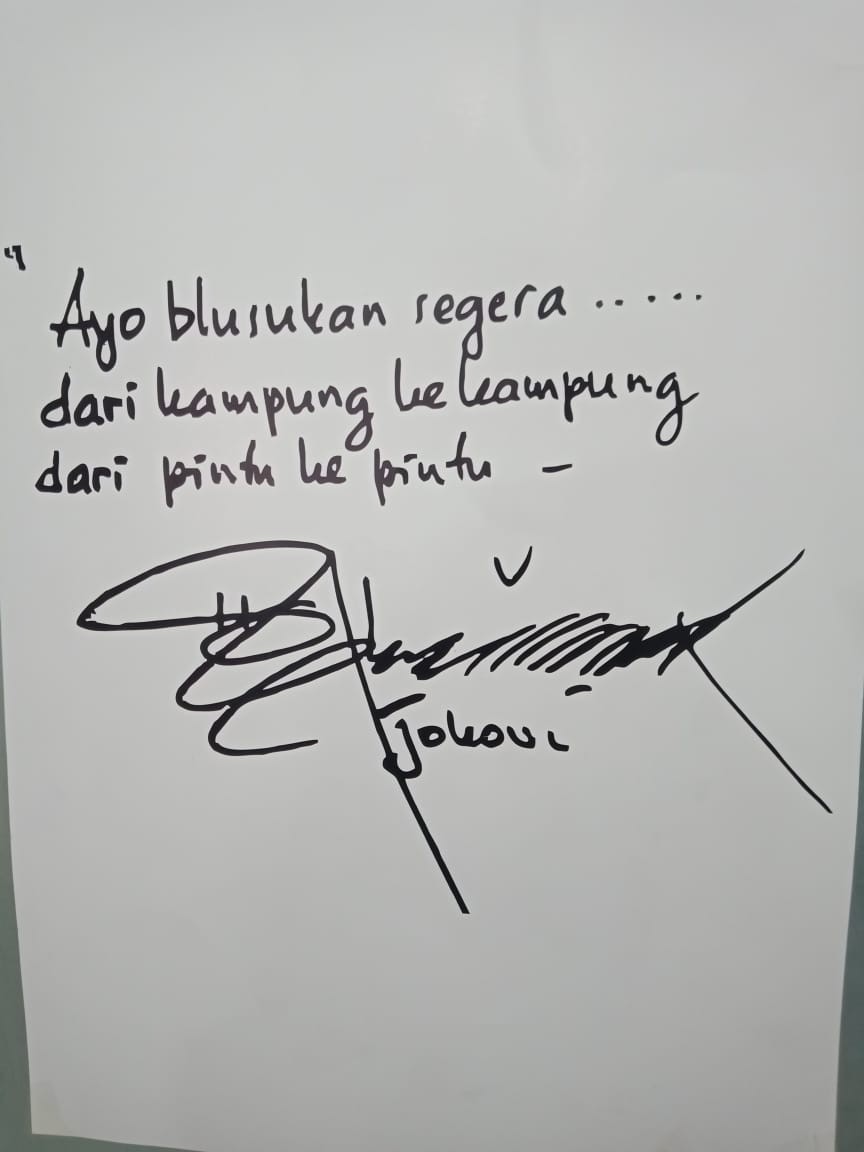 "
Ayo blusukan segera .....
dari kampung ke kampung
dari pintu ke pintu -
Jokowi